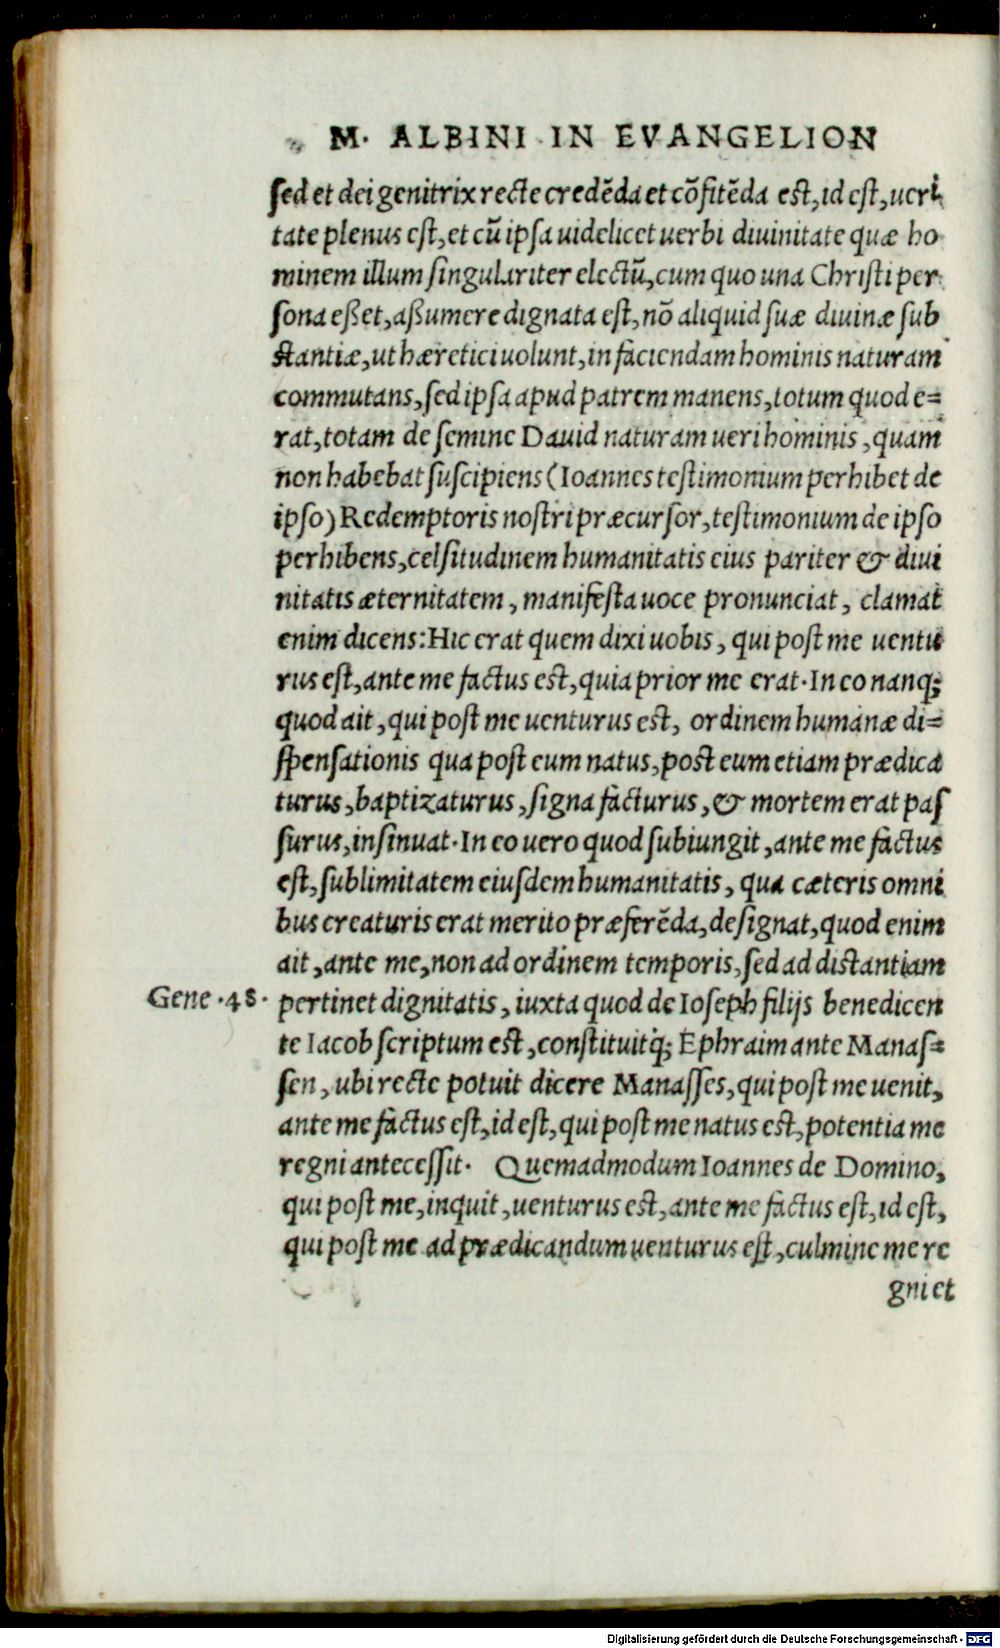 M. ALBINI IN EVANGELION
sed et dei genitrix recte credēda et cōfitēda est, id est, ueri
tate plenus est, et cū ipsa uidelicet uerbi diuinitate quæ ho
minem illum singulariter electū, cum quo una Christi per
sona eßet, aßumere dignata est, nō aliquid suæ diuinæ sub
stantiæ, ut hæretici uolunt, in faciendam hominis naturam
commutans, sed ipsa apud patrem manens, totum quod e=
rat, totam de semine Dauid naturam ueri hominis, quam
non habebat suscipiens (Ioannes testimonium perhibet de
ipso) Redemptoris nostri præcursor, testimonium de ipso
perhibens, celsitudinem humanitatis eius pariter & diui
nitatis æternitatem, manifesta uoce pronunciat, clamat
enim dicens: Hic erat quem dixi uobis, qui post me uentu
rus est, ante me factus est, quia prior me erat. In eo nanq;
quod ait, qui post me uenturus est, ordinem humanæ di=
spensationis qua post eum natus, post eum etiam prædica
turus, baptizaturus, signa facturus, & mortem erat pas
surus, insinuat. In eo uero quod subiungit, ante me factus
est, sublimitatem eiusdem humanitatis, qua cæteris omni
bus creaturis erat merito præferēda, designat, quod enim
ait, ante me, non ad ordinem temporis, sed ad distantiam
Gene .48. pertinet dignitatis, iuxta quod de Ioseph filijs benedicen
te Iacob scriptum est, constituitq; Ephraim ante Manas=
sen, ubi recte potuit dicere Manasses, qui post me uenit,
ante me factus est, id est, qui post me natus est, potentia me
regni antecessit. Quemadmodum Ioannes de Domino,
qui post me, inquit, uenturus est, ante me factus est, id est,
qui post me ad prædicandum uenturus est, culmine me re
gni et
Digitalisierung gefördert durch die Deutsche Forschungsgemeinschaft - DFG